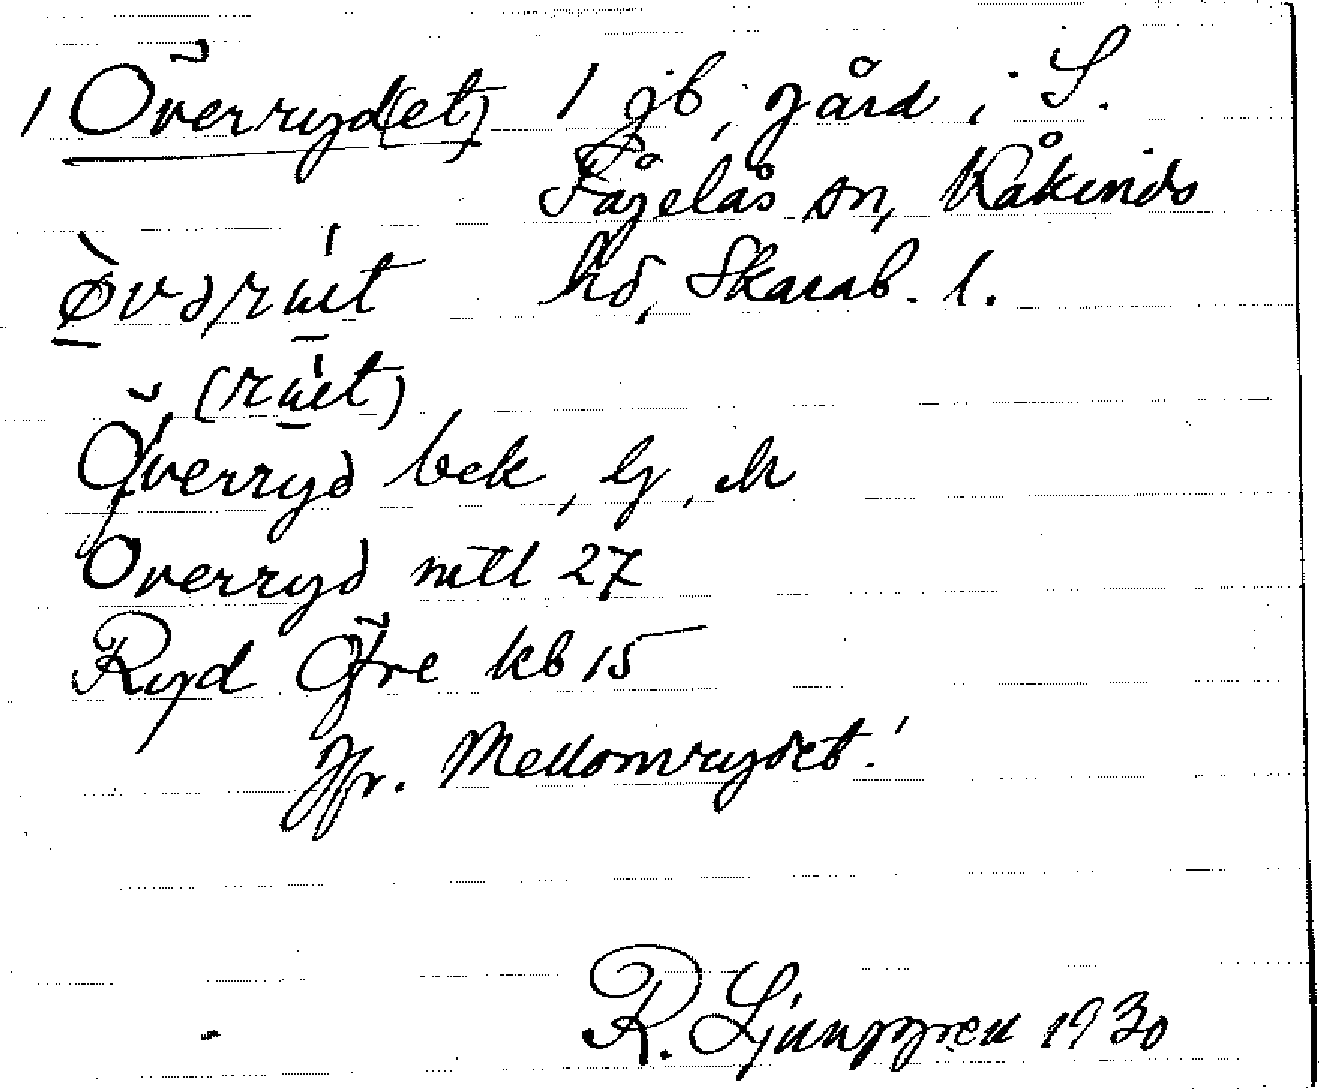 1 Överryd(et) 1 jb, gård i S.
Fågelås sn, Kåkinds
hd, Skarab. l.
Överryd bek, G, M
Överryd mtl 27
Ryd Öfre kb 15
Jfr. Mellomrydet!
R. Ljunggren 1930